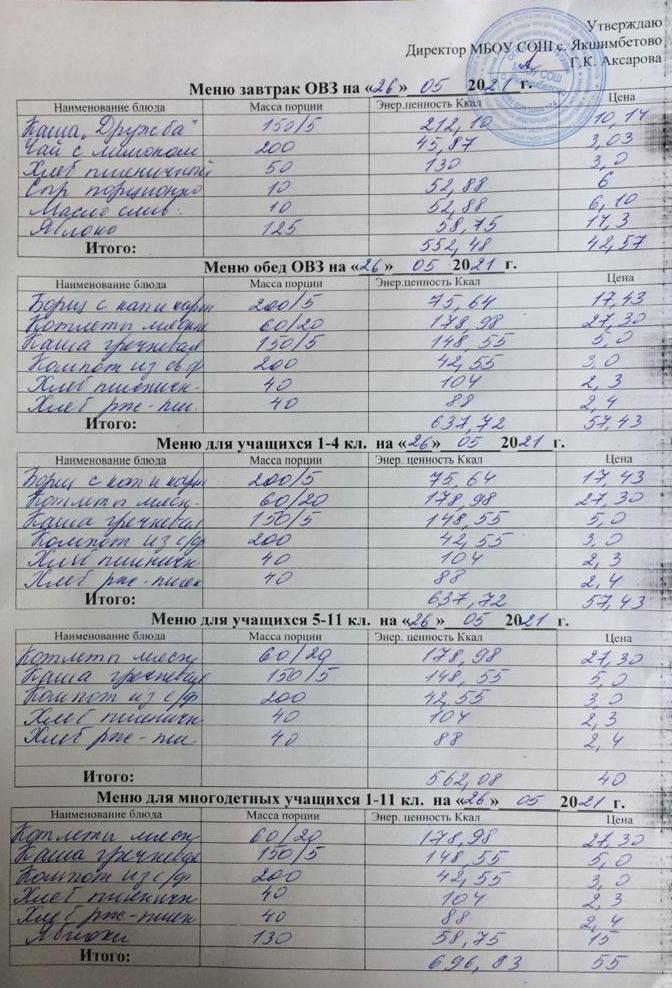 Утверждаю
Директор МБОУ СОШ с. Якшимбетово
Г.К. Аксарова
Меню завтрак ОВЗ на «26» 05 2021 г.
Наименование блюда Масса порции Энер.ценность Ккал Цена
Каша „Дружба“ 150/5 212,10 10,14
Чай с лимоном 200 45,87 3,03
Хлеб пшеничной 50 130 3,0
Сыр порционно 10 52,88 6
Масло слив. 10 52,88 6,10
Яблоко 125 58,75 17,3
Итого: 552,48 42,57
Меню обед ОВЗ на «26» 05 2021 г.
Наименование блюда Масса порции Энер.ценность Ккал Цена
Борщ с кап и карт 200/5 75,64 17,43
Котлеты мясн 60/20 178,98 27,30
Каша гречневая 150/5 148,55 5,0
Компот из св ф 200 42,55 3,0
Хлеб пшеничн. 40 104 2,3
Хлеб рже-пш. 40 88 2,4
Итого: 637,72 57,43
Меню для учащихся 1-4 кл. на «26» 05 2021 г.
Наименование блюда Масса порции Энер. ценность Ккал Цена
Борщ с кап и карт 200/5 75,64 17,43
Котлеты мясн. 60/20 178,98 27,30
Каша гречневая 150/5 148,55 5,0
Компот из с/ф 200 42,55 3,0
Хлеб пшеничн 40 104 2,3
Хлеб рже-пшен 40 88 2,4
Итого: 637,72 57,43
Меню для учащихся 5-11 кл. на «26» 05 2021 г.
Наименование блюда Масса порции Энер. ценность Ккал Цена
Котлеты мясн 60/20 178,98 27,30
Каша гречневая 150/5 148,55 5,0
Компот из с/ф 200 42,55 3,0
Хлеб пшеничн 40 104 2,3
Хлеб рже-пш. 40 88 2,4
Итого: 562,08 40
Меню для многодетных учащихся 1-11 кл. на «26» 05 2021 г.
Наименование блюда Масса порции Энер. ценность Ккал Цена
Котлеты мясн 60/20 178,98 27,30
Каша гречневая 150/5 148,55 5,0
Компот из с/ф 200 42,55 3,0
Хлеб пшеничн 40 104 2,3
Хлеб рже-пшен 40 88 2,4
Яблоки 130 58,75 15
Итого: 696,83 55